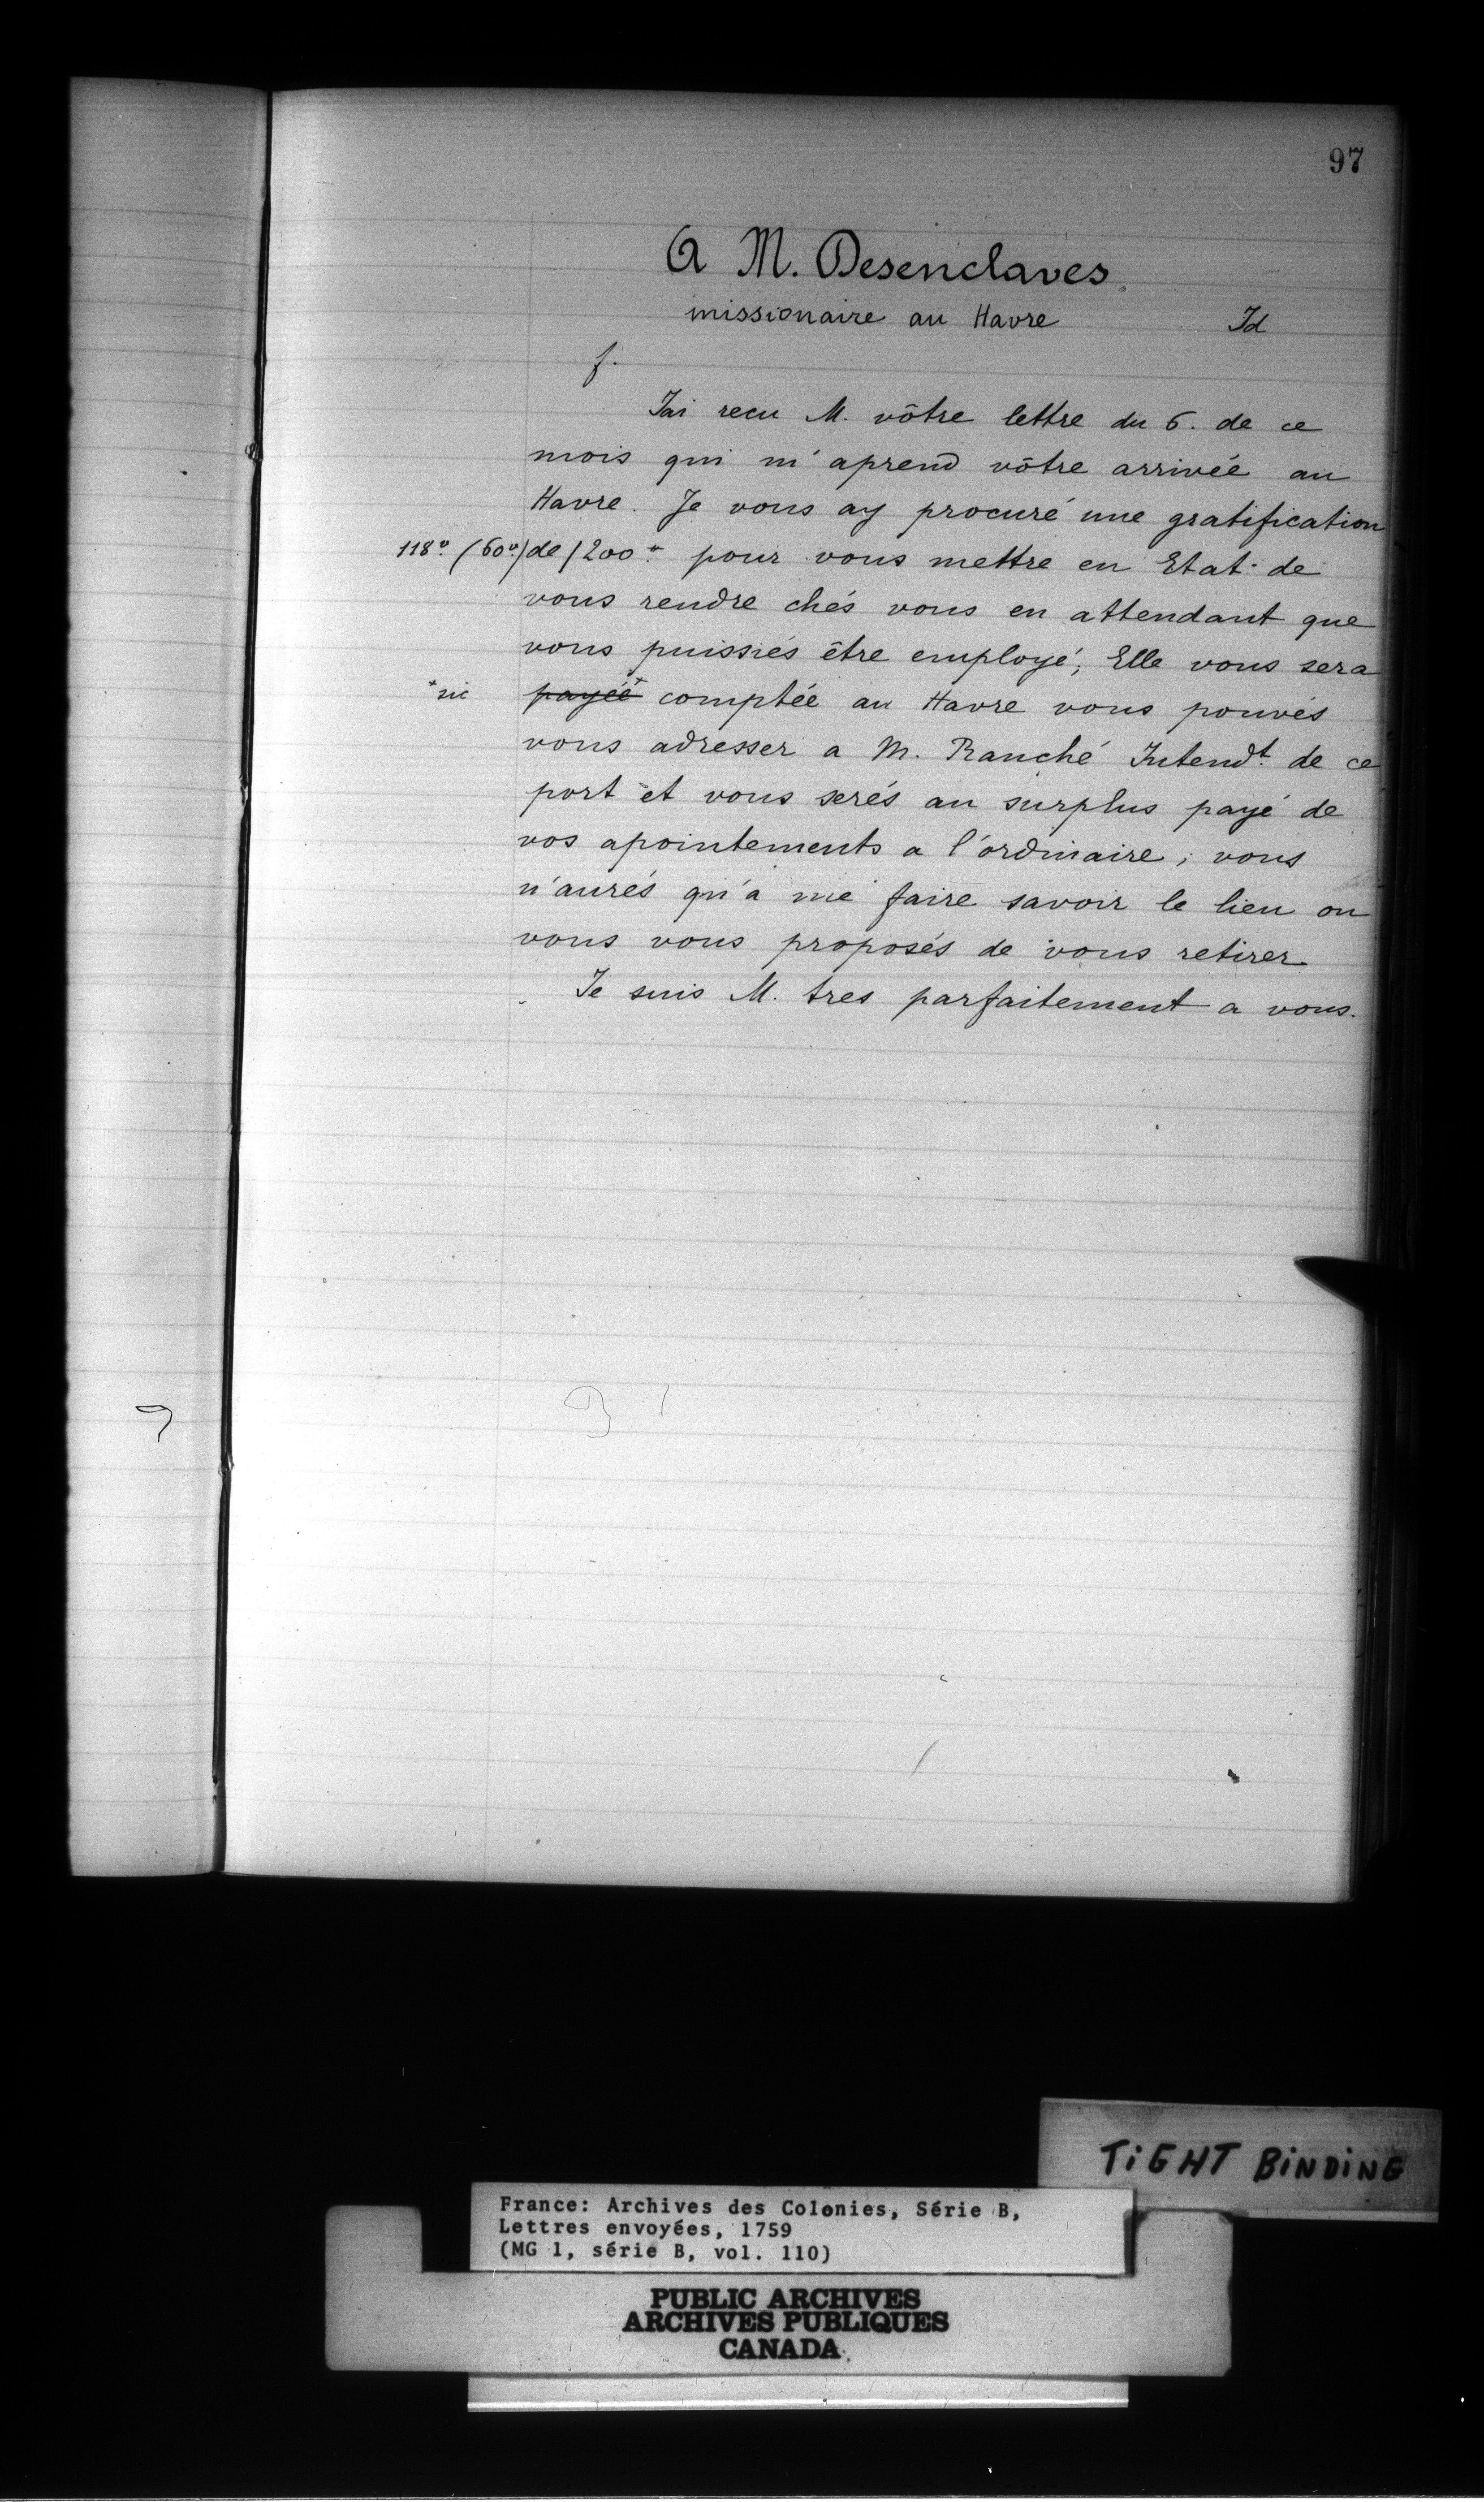 97
A M. Desenclaves
missionaire au Havre Id
f.
Jai recu M. vôtre lettre du 6. de ce
mois qui m'aprend vôtre arrivée au
Havre. Je vous ay procuré une gratification
118º (60º) de / 200ᵗᵗ pour vous mettre en Etat de
vous rendre chés vous en attendant que
vous puissiés être employé, Elle vous sera
+sic payéé+ comptée au Havre vous pouvés
vous adresser a M. Ranché Intendt. de ce
port et vous serés au surplus payé de
vos apointements a l'ordinaire; vous
n'aurés qu'a me faire savoir le lieu ou
vous vous proposés de vous retirer
Je suis M. tres parfaitement a vous.
TiGHT BiNDiNG
France: Archives des Colonies, Série B,
Lettres envoyées, 1759
(MG 1, série B, vol. 110)
PUBLIC ARCHIVES
ARCHIVES PUBLIQUES
CANADA